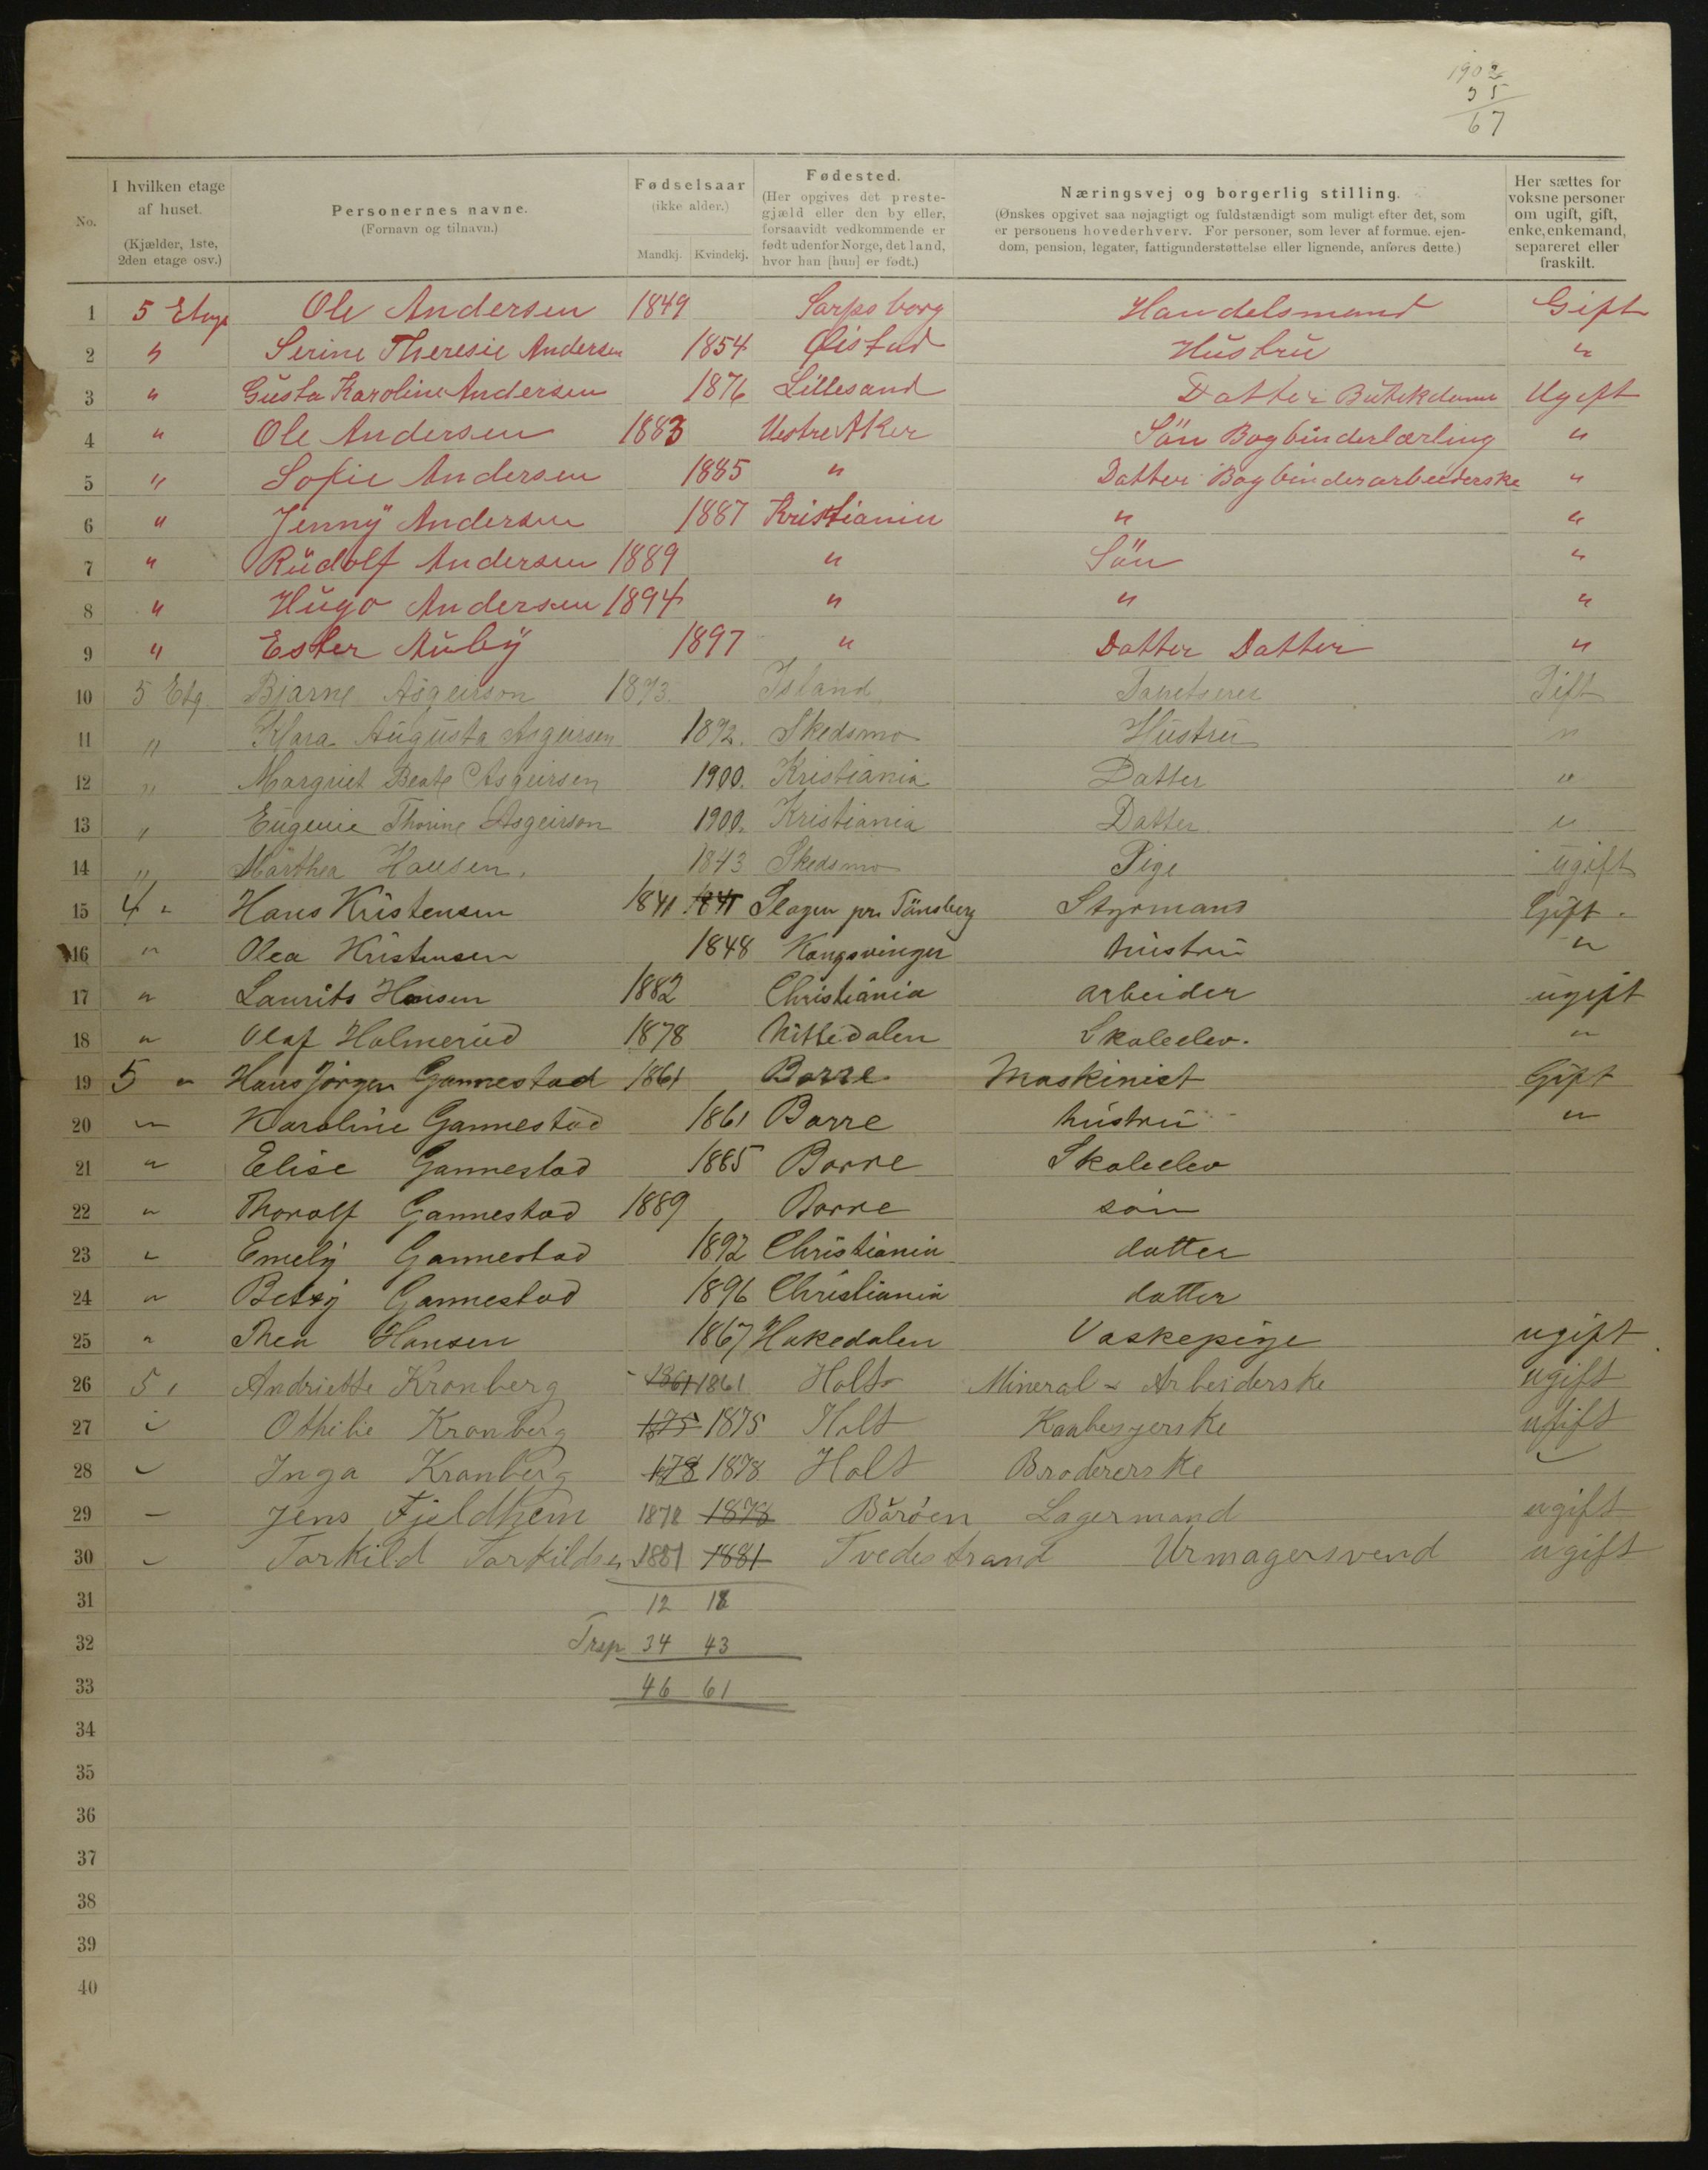 1902
35
67
No. I hvilken etage af huset. (Kjælder, 1ste, 2den etage osv.) Personernes navne. (Fornavn og tilnavn.) Fødselsaar (ikke alder.) Mandkj. Kvindekj. Fødested. (Her opgives det prestegjæld eller den by eller, forsaavidt vedkommende er født udenfor Norge, det land, hvor han [hun] er født.) Næringsvej og borgerlig stilling. (Ønskes opgivet saa nøjagtigt og fuldstændigt som muligt efter det, som er personens hovederhverv. For personer, som lever af formue, ejendom, pension, legater, fattigunderstøttelse eller lignende, anføres dette.) Her sættes for voksne personer om ugift, gift, enke, enkemand, separeret eller fraskilt.
1 5 Etage Ole Andersen 1849 Sarpsborg Handelsmand Gift
2 " Serine Theresie Andersen 1854 Øistad Hustru "
3 " Gusta Karoline Andersen 1876 Lillesand Datter Butikdame Ugift
4 " Ole Andersen 1883 Vestre Aker Sön Bogbinderlærling "
5 " Sofie Andersen 1885 " Datter Bogbinderarbeiderske "
6 " Jenny Andersen 1887 Kristiania " "
7 " Rudolf Andersen 1889 " Sön "
8 " Hugo Andersen 1894 " " "
9 " Ester Auby 1897 " Datter Datter "
10 5 Etg. Bjarne Asgeirson 1873 Island Gift
11 " Klara Augusta Asgeirsen 1872. Skedsmo Hustru "
12 " Margriet Beate Asgeirsen 1900. Kristiania Datter "
13 " Eugenie Thorine Asgeirson 1900. Kristiania Datter "
14 " Marthea Hansen. 1843 Skedsmo Pige ugift
15 4 " Hans Kristensen 1841 1841 Slagen pr. Tönsberg Styrmand Gift.
16 " Olea Kristensen 1848 Kongsvinger hustru "
17 " Laurits Hansen 1882 Christiania arbeider ugift
18 " Olaf Holmerud 1878 Nittedalen Skoleelev. "
19 5 " Hans Jörgen Gannestad 1861 Borre Maskinist Gift
20 " Karoline Gannestad 1861 Borre hustru "
21 " Elise Gannestad 1885 Borre Skoleelev
22 " Thoralf Gannestad 1889 Borre sön
23 " Emely Gannestad 1892 Christiania datter
24 " Betsy Gannestad 1896 Christiania datter
25 " Thea Hansen 1867 Hakedalen Vaskepige ugift
26 5 " Andriette Kronberg 1861 1861 Holt Mineral - Arbeiderske ugift
27 " Othilie Kronberg 1875 1875 Holt Kaabesyerske ugift
28 " Inga Kronberg 1878 1878 Holt Brodererske "
29 " Jens Fjeldhem 1878 1878 Båröen Lagermand ugift
30 " Torkild Torkildsen 1881 1881 Tvedestrand Urmagersvend ugift
31 12 18
32 Trsp 34 43
33 46 61
34
35
36
37
38
39
40